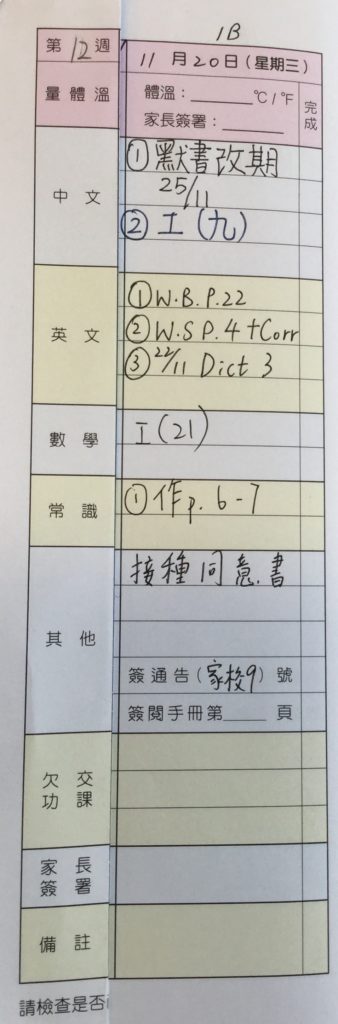 1B
第12週
11月20日(星期三)
量體溫
體溫：______℃/℉
家長簽署：______
完成
中文
①默書改期
25/11
②工(九)
英文
①W.B.P.22
②W.S P.4+Corr
③22/11 Dict 3
數學
工(21)
常識
①作p.6-7
其他
接種同意書
簽通告(家校9)號
簽閱手冊第____頁
欠交
功課
家長
簽署
備註
請檢查是否